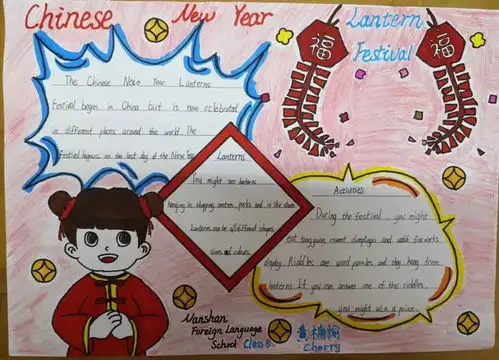 Chinese New Year
Lantern
Festival
福
福
The Chinese New Year Lanterns
Festival began in China but is now celebrated
in different places around the world. The
festival happens on the last day of the New Year
Lanterns
You might see lanterns
hanging in shopping centres, parks and in the streets
Lanterns can be all different shapes,
sizes and colours.
Activities
During the festival, you might
eat tangyuan sweet dumplings and watch fireworks
display. Riddles are word puzzles and they hang from
lanterns. If you can answer one of the riddles,
you might win a prize.
Nanshan
Foreign Language
School Class 5
Cherry